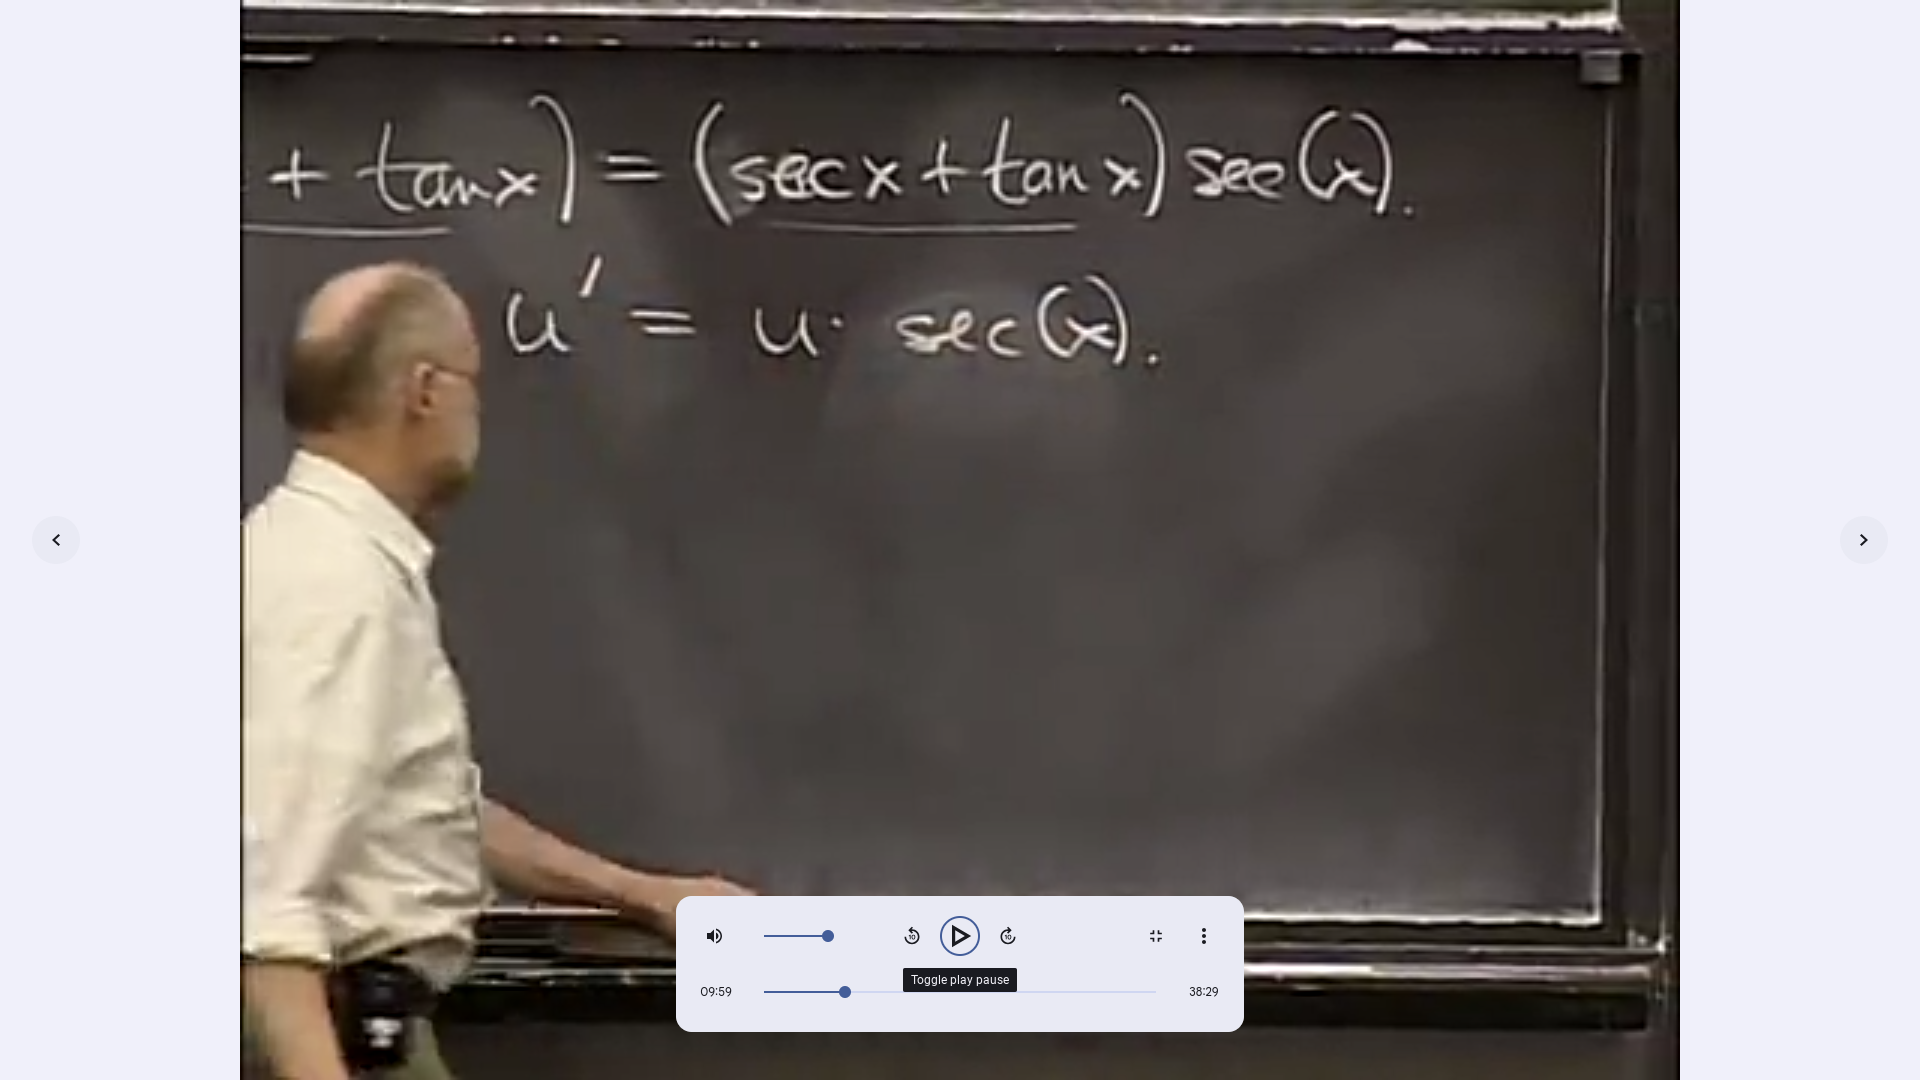 + tanx) = (secx + tan x) sec(x).
u' = u · sec(x).
10 10
Toggle play pause
09:59 38:29